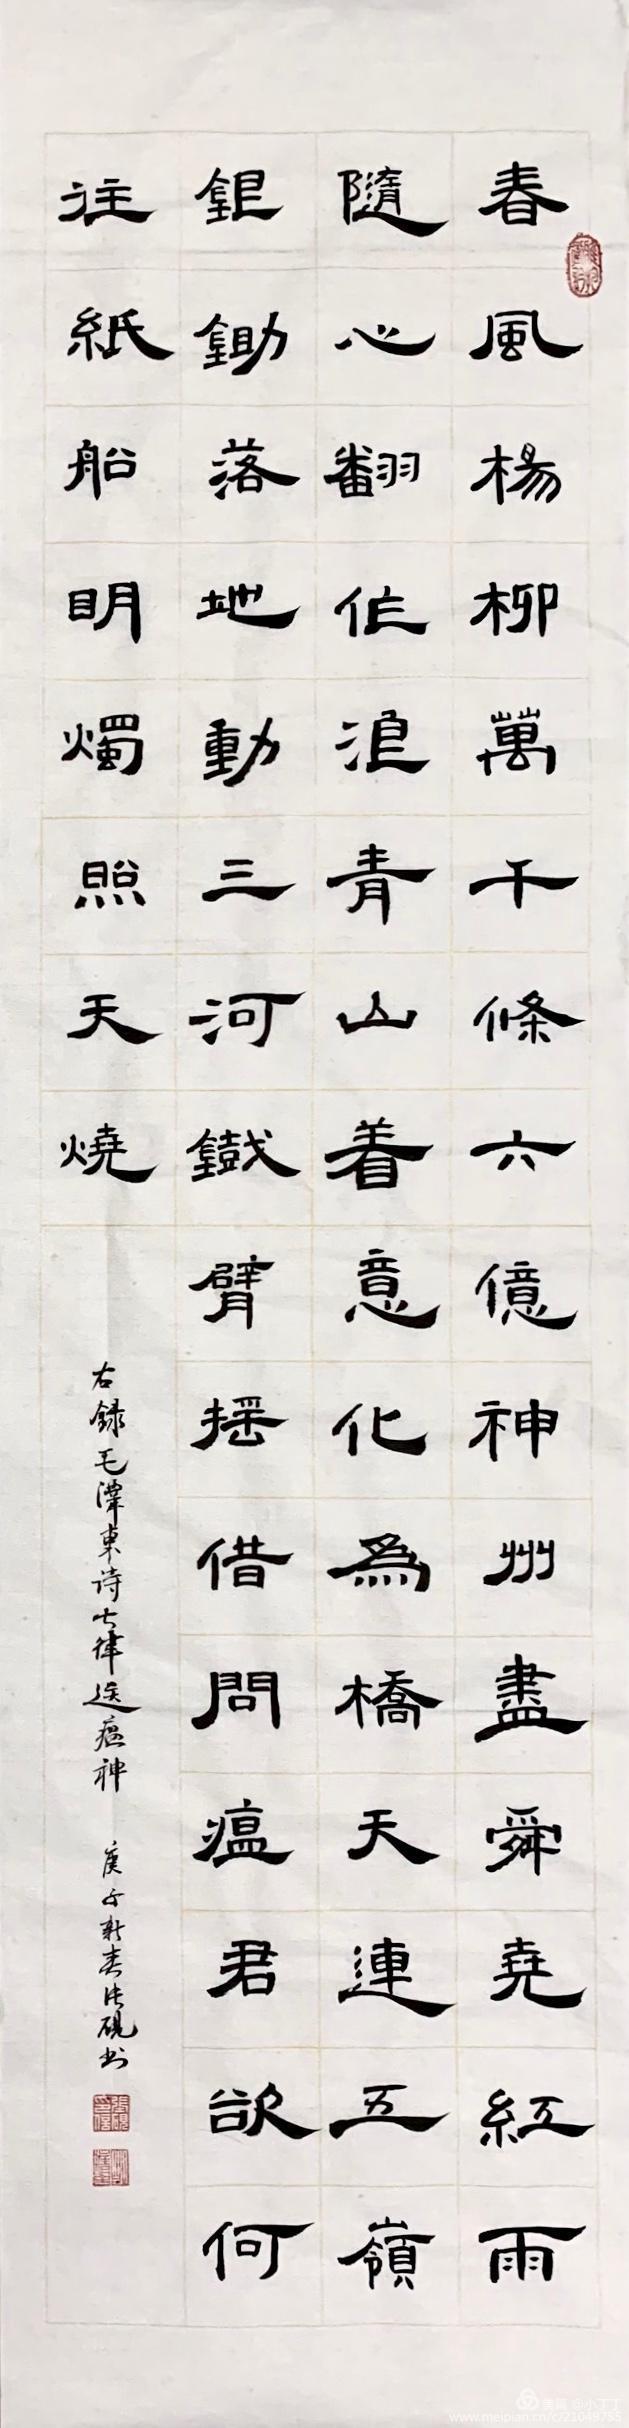 春風楊柳萬千條六億神州盡舜堯紅雨
隨心翻作浪青山着意化為橋天連五嶺
銀鋤落地動三河鐵臂摇借問瘟君欲何
往紙船明燭照天燒
右録毛澤東诗七律送瘟神
庚子新春張硯书
美篇 @小丁丁
www.meipian.cn/c/21049755